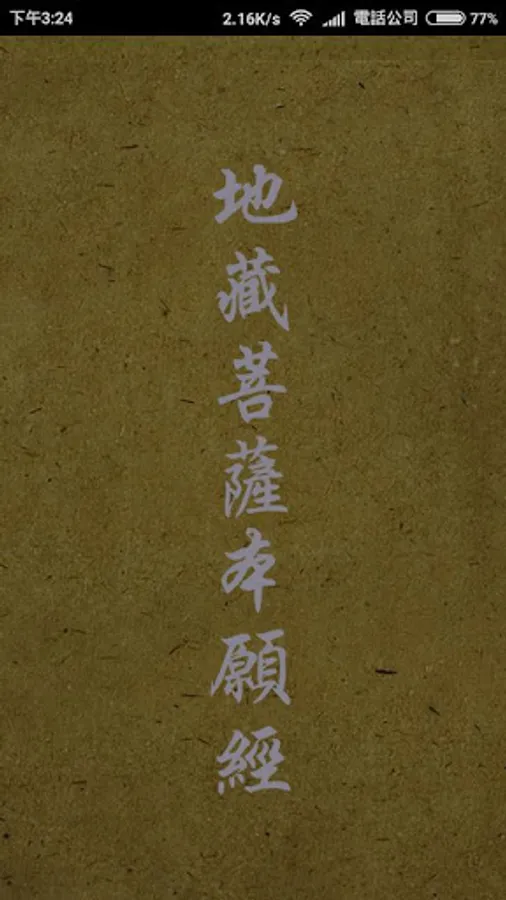 下午3:24 2.16K/s 電話公司 77%
地藏菩薩本願經